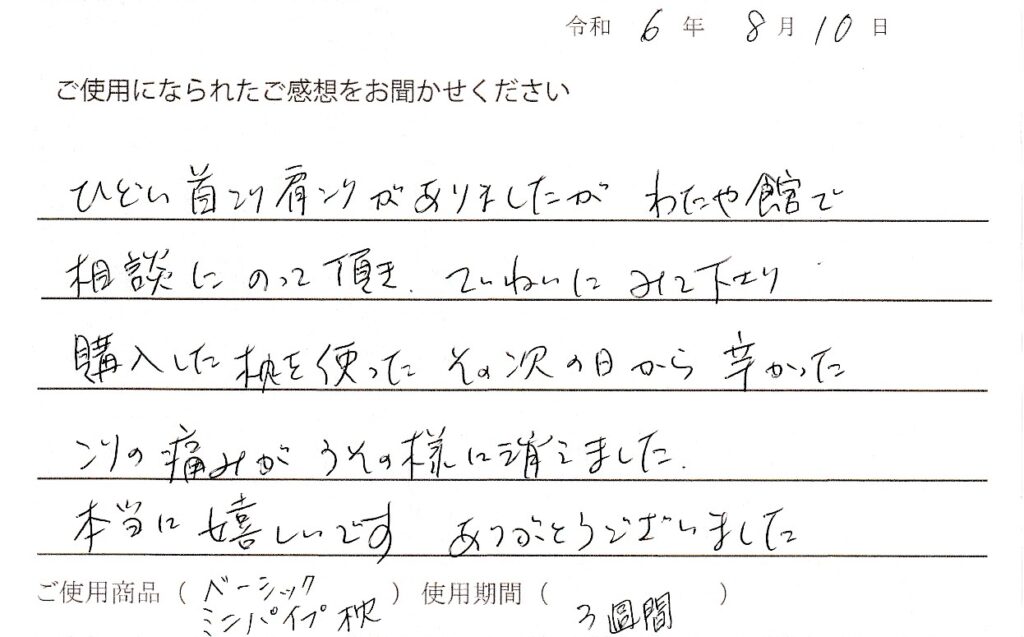 令和 6 年 8 月 10 日
ご使用になられたご感想をお聞かせください
ひどい首コリ肩コリがありましたが わたや館で
相談にのって頂き、ていねいにみて下さり
購入した枕を使ったその次の日から辛かった
コリの痛みがうその様に消えました。
本当に嬉しいです ありがとうございました
ご使用商品 ( ベーシック
ミニパイプ枕 ) 使用期間 ( 3週間 )